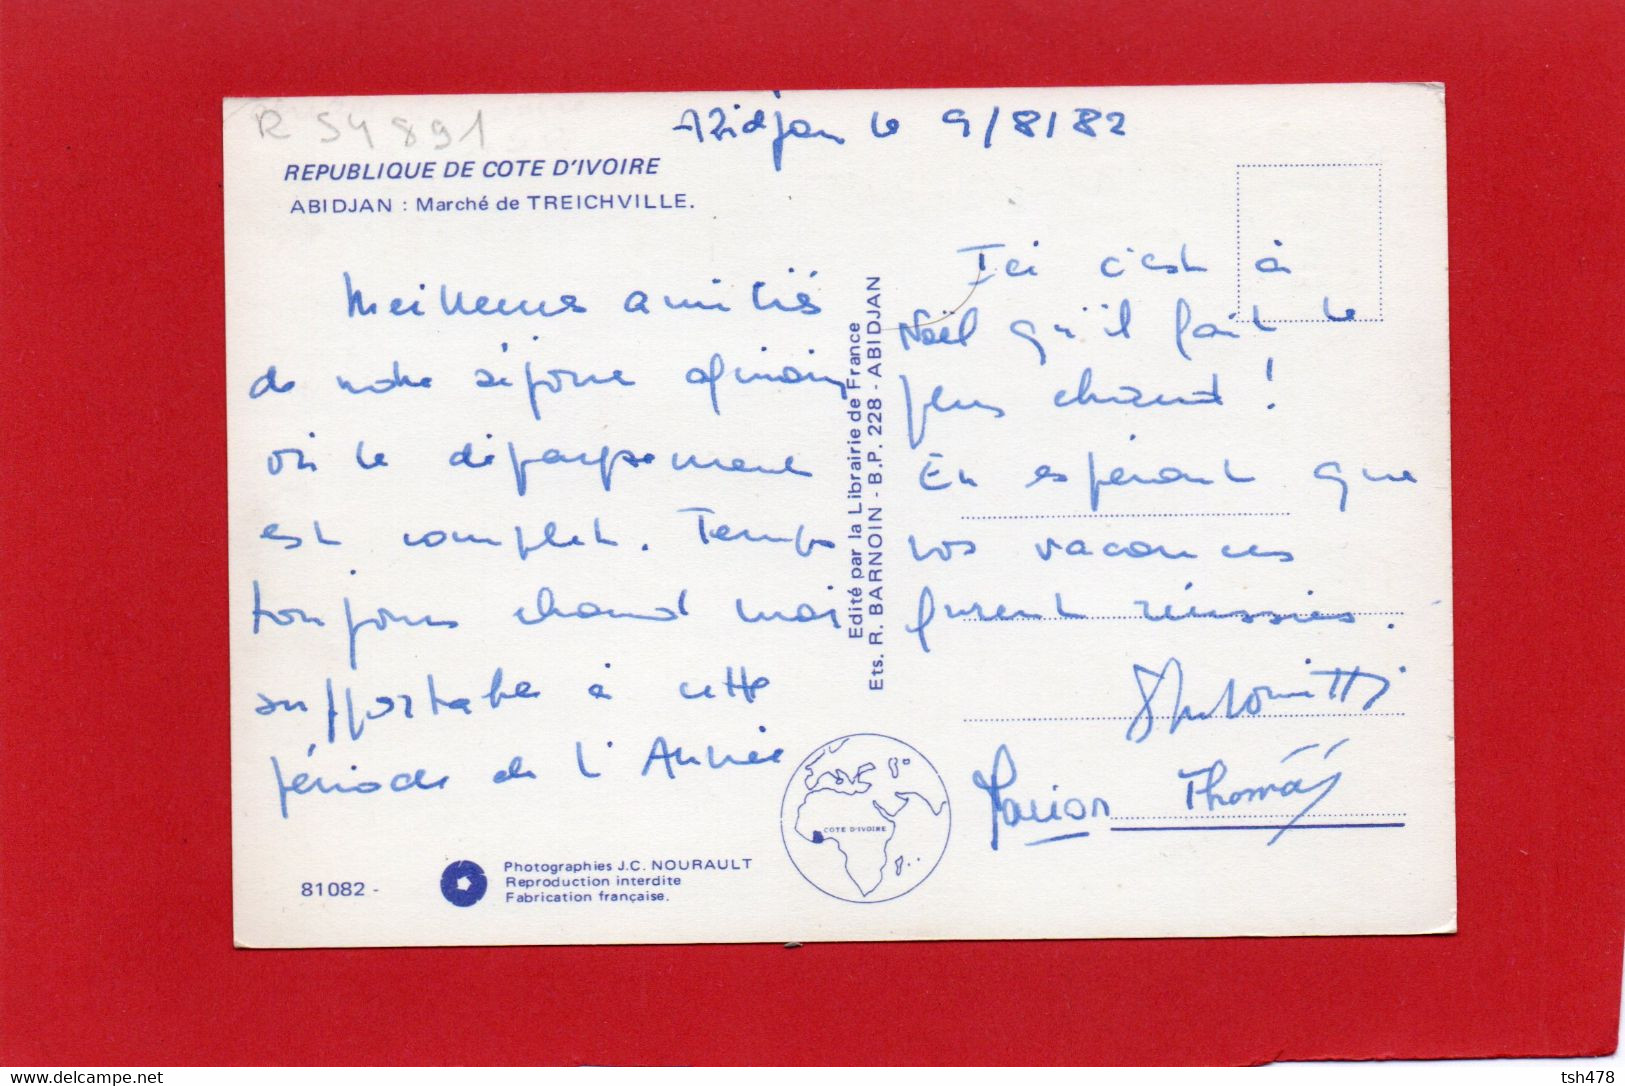 R 54891
Abidjan le 9/8/82
REPUBLIQUE DE COTE D'IVOIRE
ABIDJAN : Marché de TREICHVILLE.
Meilleures amitiés
de notre séjour africain
où le dépaysement
est complet. Temps
toujours chaud mais
supportable à cette
période de l'Année
Edité par la Librairie de France
Ets. R. BARNOIN - B.P. 228 - ABIDJAN
Ici c'est à
Noël qu'il fait le
plus chaud !
En espérant que
vos vacances
furent réussies.
Marion Thomas
COTE D'IVOIRE
81082 -
Photographies J.C. NOURAULT
Reproduction interdite
Fabrication française.
tsh478